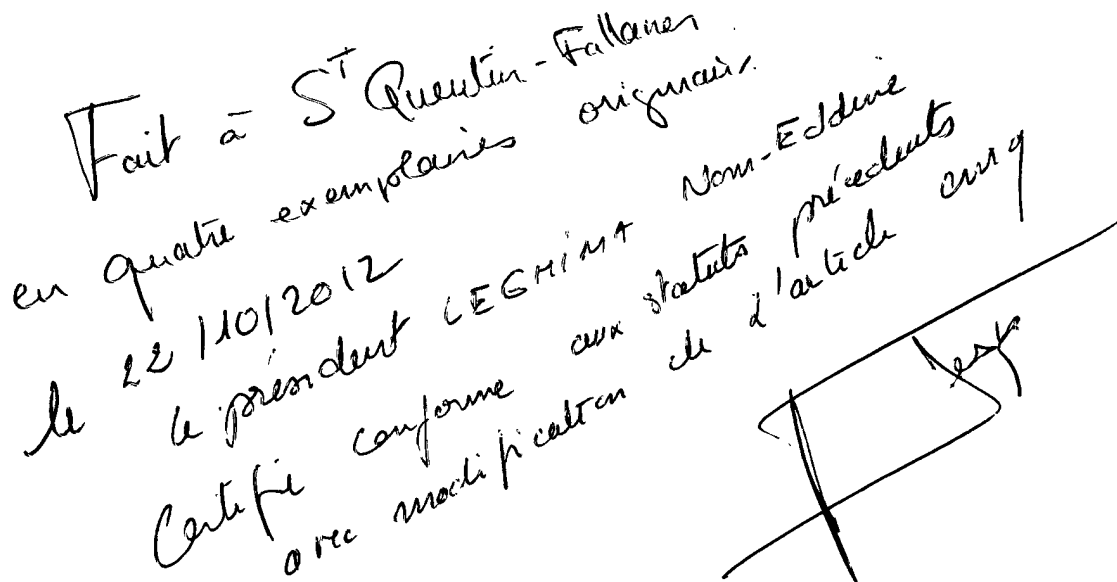 Fait à S^T Quentin-Fallavier
en quatre exemplaires originaux.
le 22/10/2012
le président LEGHIMA Nour-Eddine
Certifié conforme aux statuts précédents
avec modification de l'article cinq